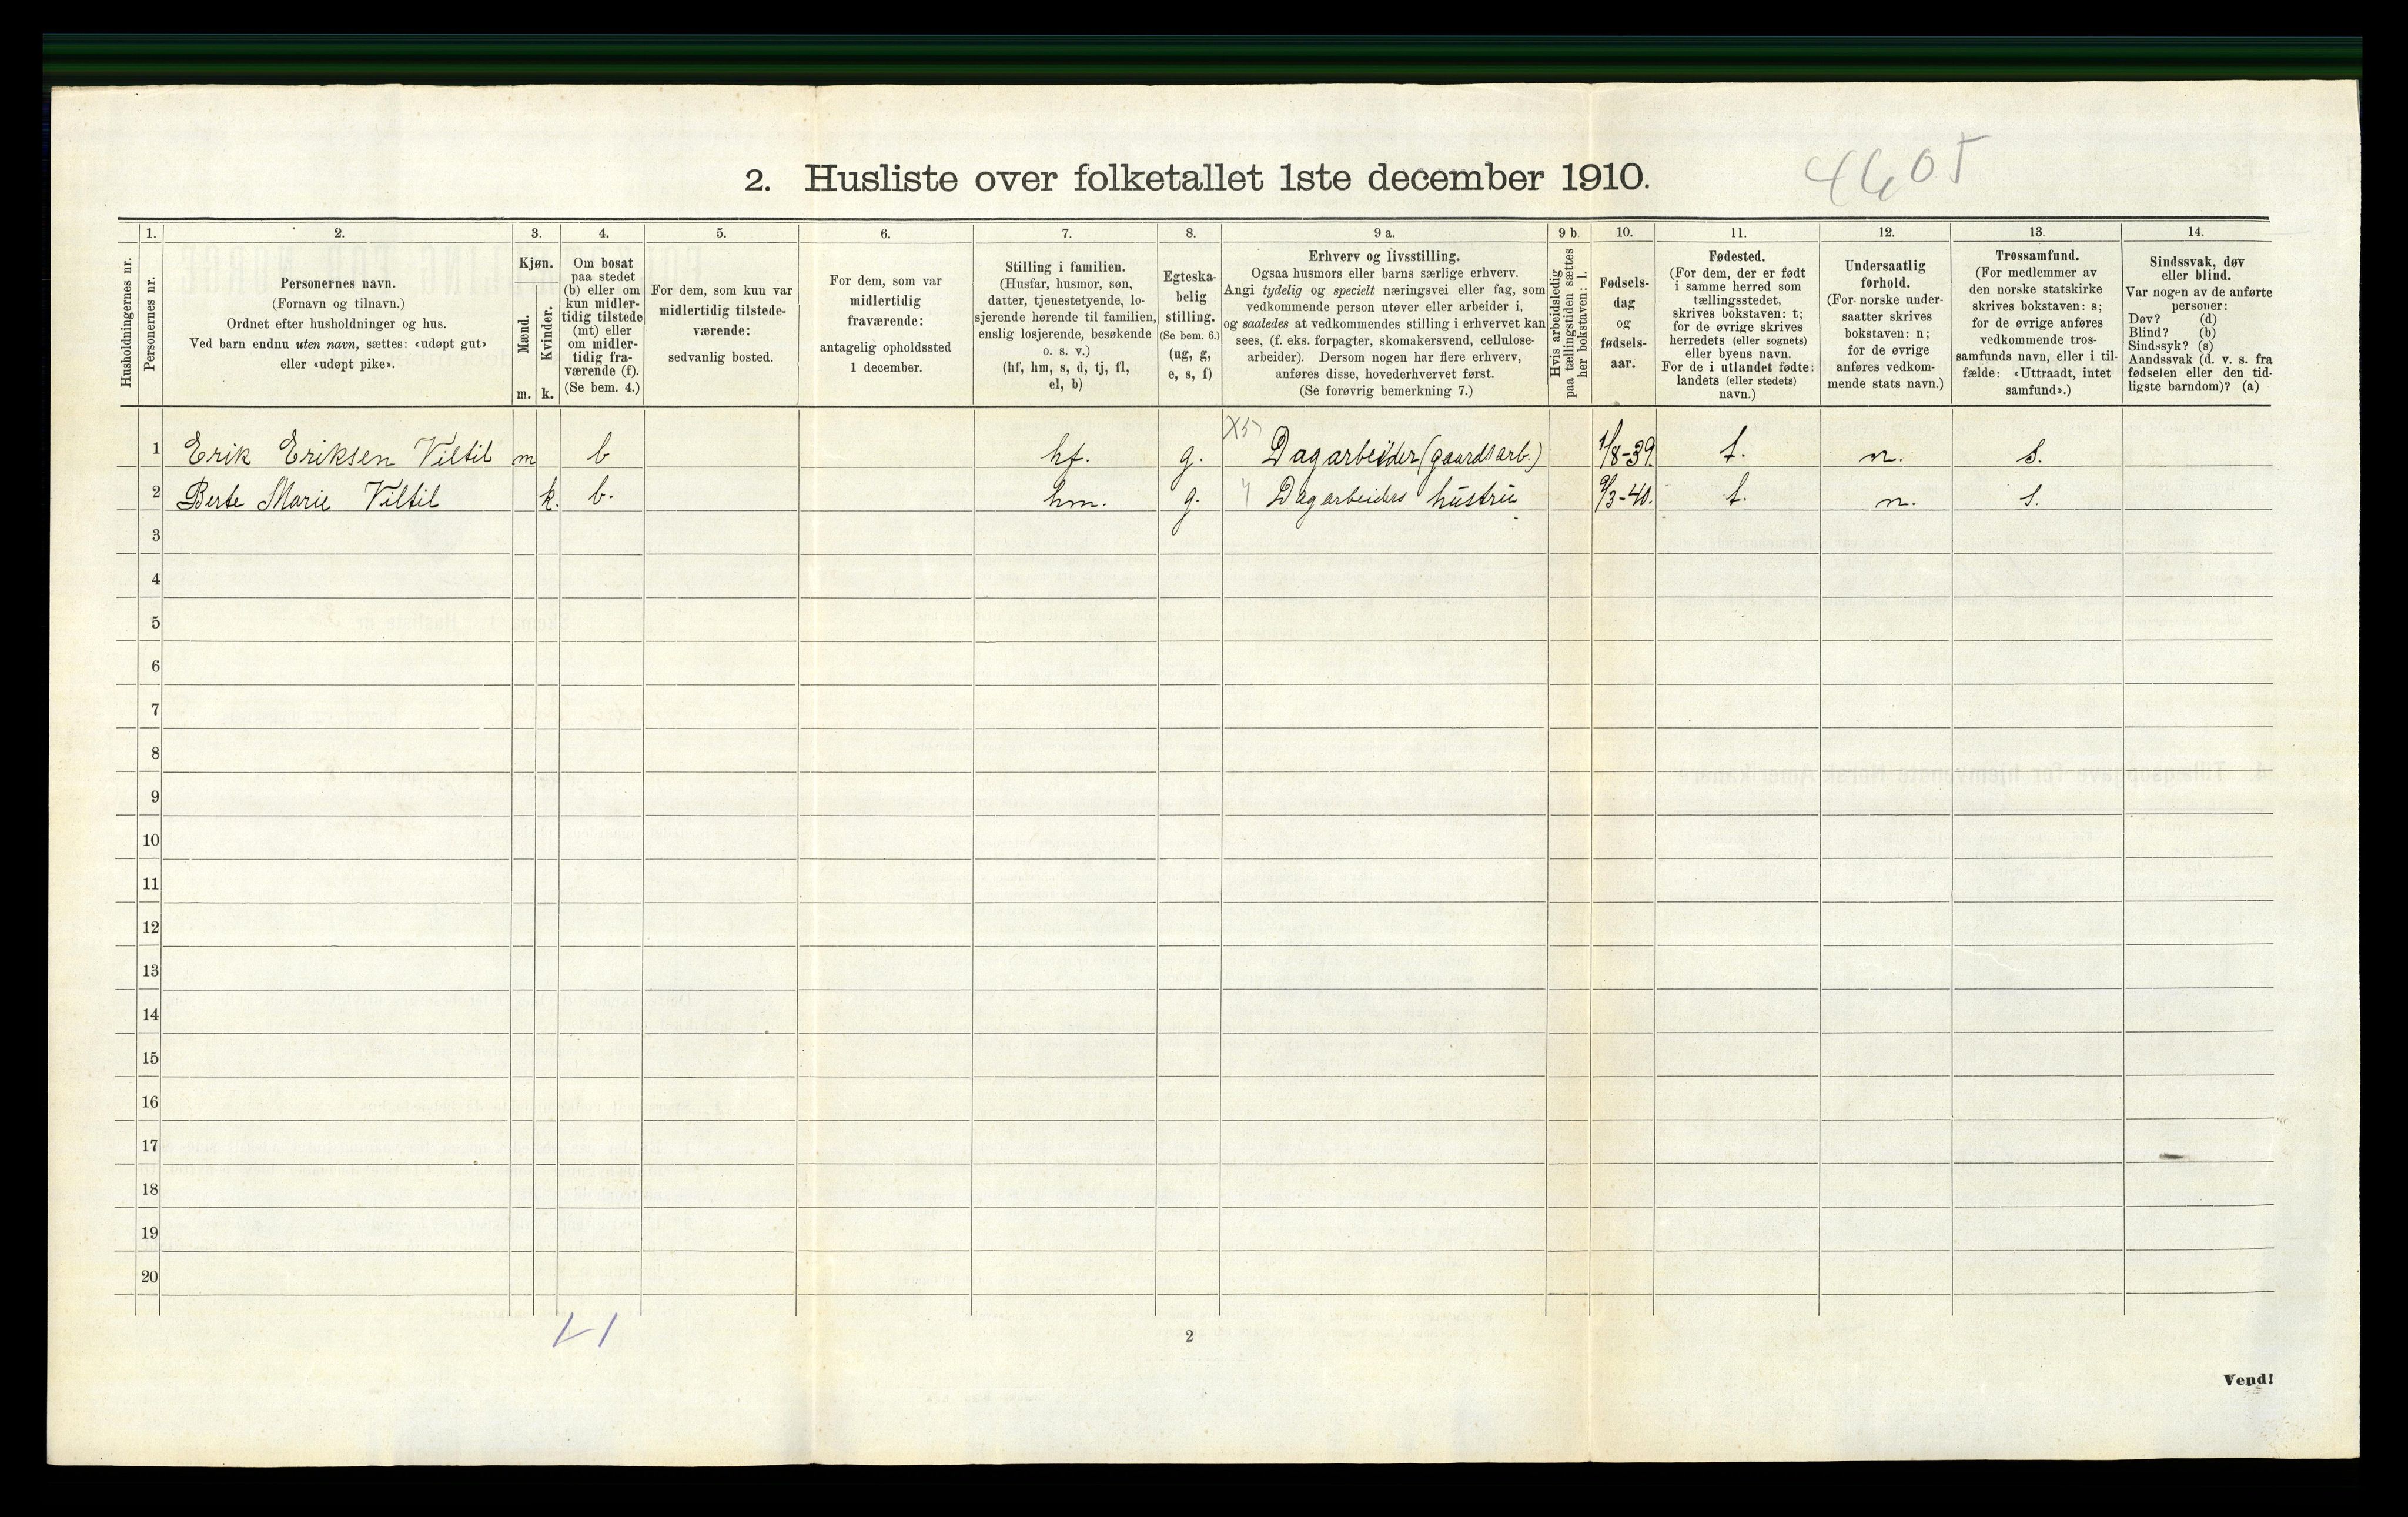 2. Husliste over folketallet 1ste december 1910.
4605
Husholdningernes nr.
1.
Personernes nr.
2.
Personernes navn.
(Fornavn og tilnavn.)
Ordnet efter husholdninger og hus.
Ved barn endnu uten navn, sættes: «udøpt gut»
eller «udøpt pike».
3.
Kjøn.
Mænd.
Kvinder.
m. k.
4.
Om bosat
paa stedet
(b) eller om
kun midler-
tidig tilstede
(mt) eller
om midler-
tidig fra-
værende (f).
(Se bem. 4.)
5.
For dem, som kun var
midlertidig tilstede-
værende:
sedvanlig bosted.
6.
For dem, som var
midlertidig
fraværende:
antagelig opholdssted
1 december.
7.
Stilling i familien.
(Husfar, husmor, søn,
datter, tjenestetyende, lo-
sjerende hørende til familien,
enslig losjerende, besøkende
o. s. v.)
(hf, hm, s, d, tj, fl,
el, b)
8.
Egteska-
belig
stilling.
(Se bem. 6.)
(ug, g,
e, s, f)
9 a.
Erhverv og livsstilling.
Ogsaa husmors eller barns særlige erhverv.
Angi tydelig og specielt næringsvei eller fag, som
vedkommende person utøver eller arbeider i,
og saaledes at vedkommendes stilling i erhvervet kan
sees, (f. eks. forpagter, skomakersvend, cellulose-
arbeider). Dersom nogen har flere erhverv,
anføres disse, hovederhvervet først.
(Se forøvrig bemerkning 7.)
9 b.
Hvis arbeidsledig
paa tællingstiden sættes
her bokstaven: l.
10.
Fødsels-
dag
og
fødsels-
aar.
11.
Fødested.
(For dem, der er født
i samme herred som
tællingsstedet,
skrives bokstaven: t;
for de øvrige skrives
herredets (eller sognets)
eller byens navn.
For de i utlandet fødte:
landets (eller stedets)
navn.)
12.
Undersaatlig
forhold.
(For norske under-
saatter skrives
bokstaven: n;
for de øvrige
anføres vedkom-
mende stats navn.)
13.
Trossamfund.
(For medlemmer av
den norske statskirke
skrives bokstaven: s;
for de øvrige anføres
vedkommende tros-
samfunds navn, eller i til-
fælde: «Uttraadt, intet
samfund».)
14.
Sindssvak, døv
eller blind.
Var nogen av de anførte
personer:
Døv? (d)
Blind? (b)
Sindssyk? (s)
Aandssvak (d. v. s. fra
fødselen eller den tid-
ligste barndom)? (a)
1 Erik Eriksen Viltil m b hf. g. Dagarbeider (gaardsarb.) 1/8-39. t. n. s.
2 Berte Marie Viltil k. b. hm. g. Dagarbeiders hustru 9/3-40. t. n. s.
3
4
5
6
7
8
9
10
11
12
13
14
15
16
17
18
19
20
2
Vend!